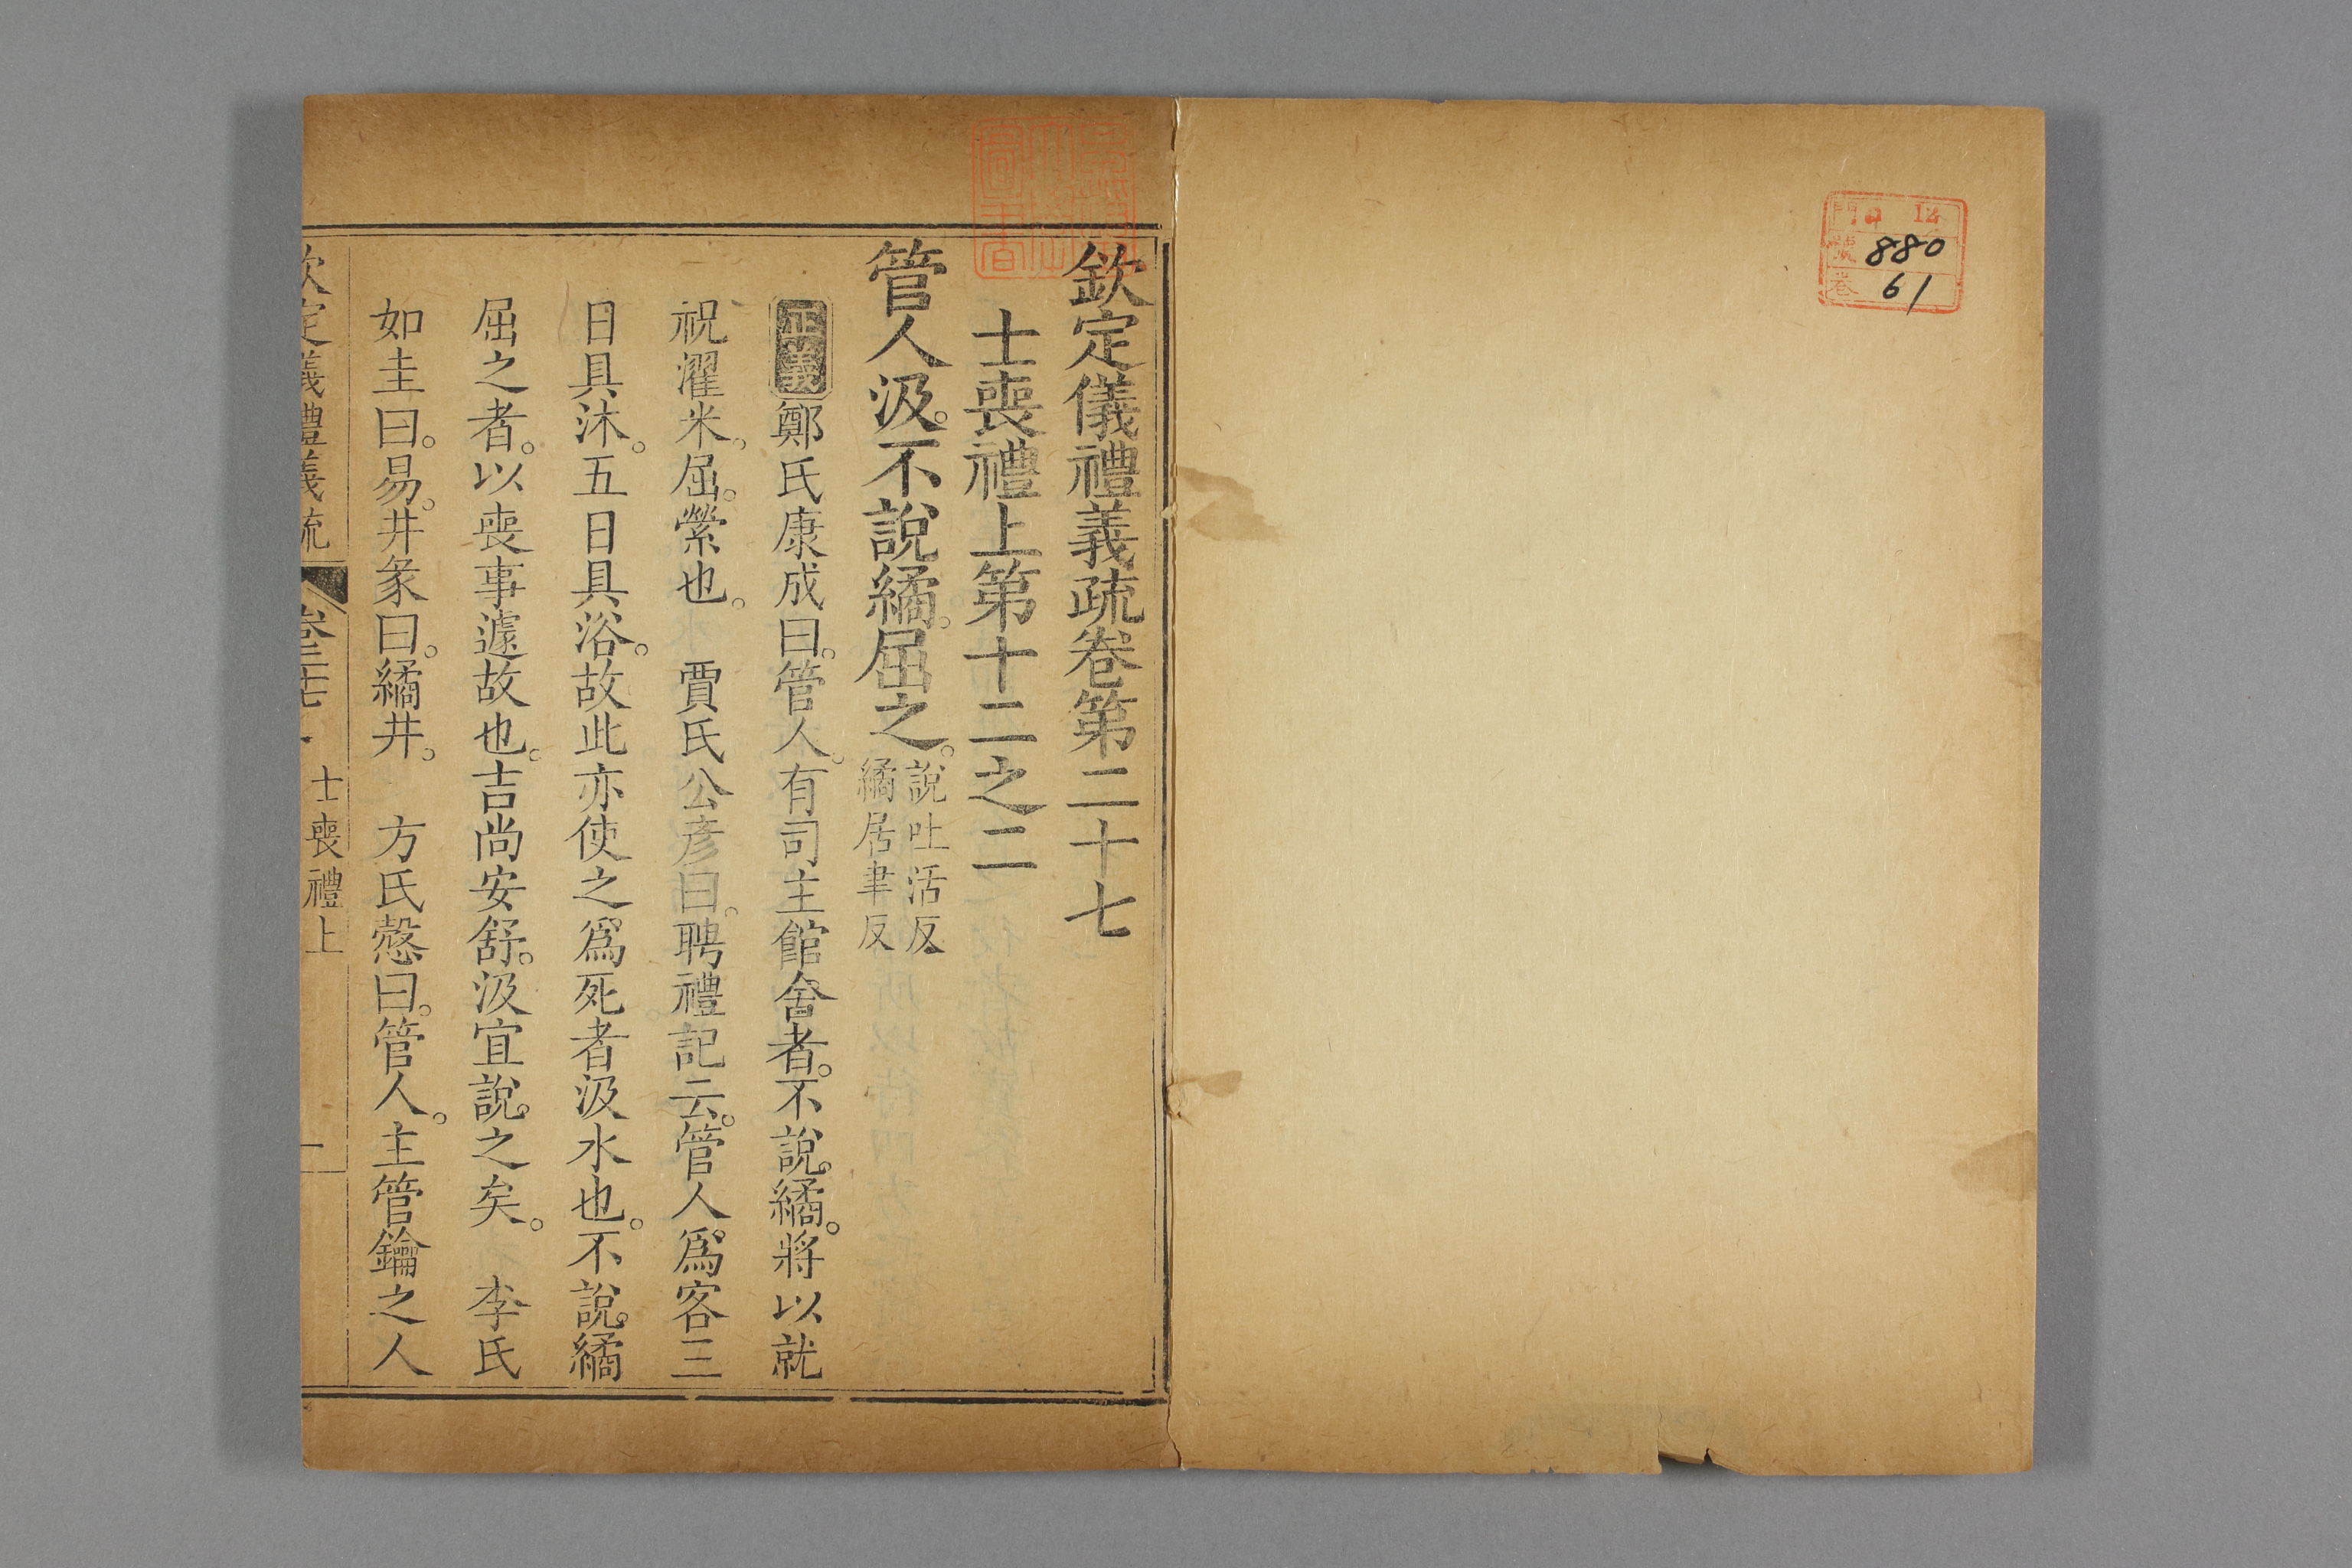 門 12
號 880
卷 61
欽定儀禮義疏卷第二十七
士喪禮上第十二之二
管人汲。不說繘。屈之。說吐活反
繘居聿反
正義鄭氏康成曰。管人。有司主館舍者。不說繘。將以就
祝濯米。屈。縈也。 賈氏公彥曰。聘禮記云。管人。爲客三
日具沐。五日具浴。故此亦使之。爲死者汲水也。不說繘
屈之者。以喪事遽故也。吉尚安舒。汲宜說之矣。 李氏
如圭曰。易。井彖曰。繘井。 方氏愨曰。管人。主管鑰之人
欽定儀禮義疏 卷二十七 士喪禮上 一